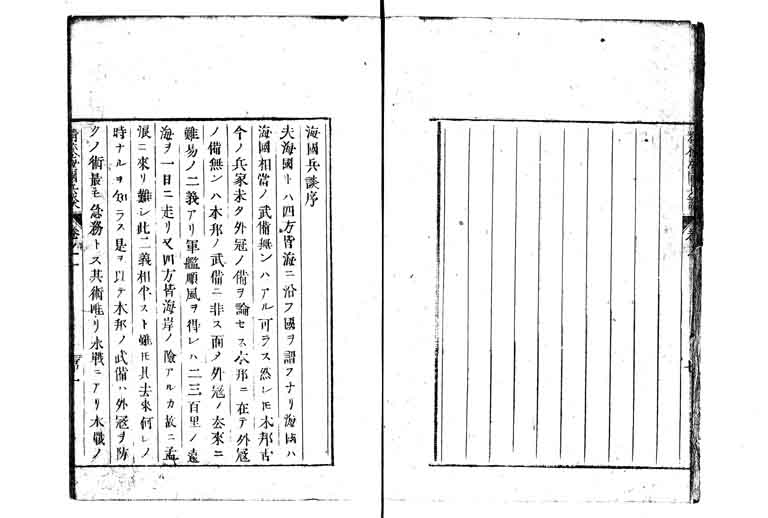 海國兵談序
夫海國トハ四方皆海ニ沿フ國ヲ謂フナリ海國ハ
海國相當ノ武備無ンハアル可ラス然レ𪜈本邦古
今ノ兵家未タ外冦ノ備ヲ論セス本邦ニ在テ外冦
ノ備無ンハ本邦ノ武備ニ非ス而メ外冦ノ去來ニ
難易ノ二義アリ軍艦順風ヲ得レハ二三百里ノ遠
海ヲ一日ニ走リ又四方皆海岸ノ險アルカ故ニ孟
浪ニ來リ難シ此二義相半スト雖𪜈其去來何レノ
時ナルヲ知ラス是ヲ以テ本邦ノ武備ハ外冦ヲ防
クノ術最モ急務トス其術唯リ水戰ニアリ水戰ノ
海國兵談